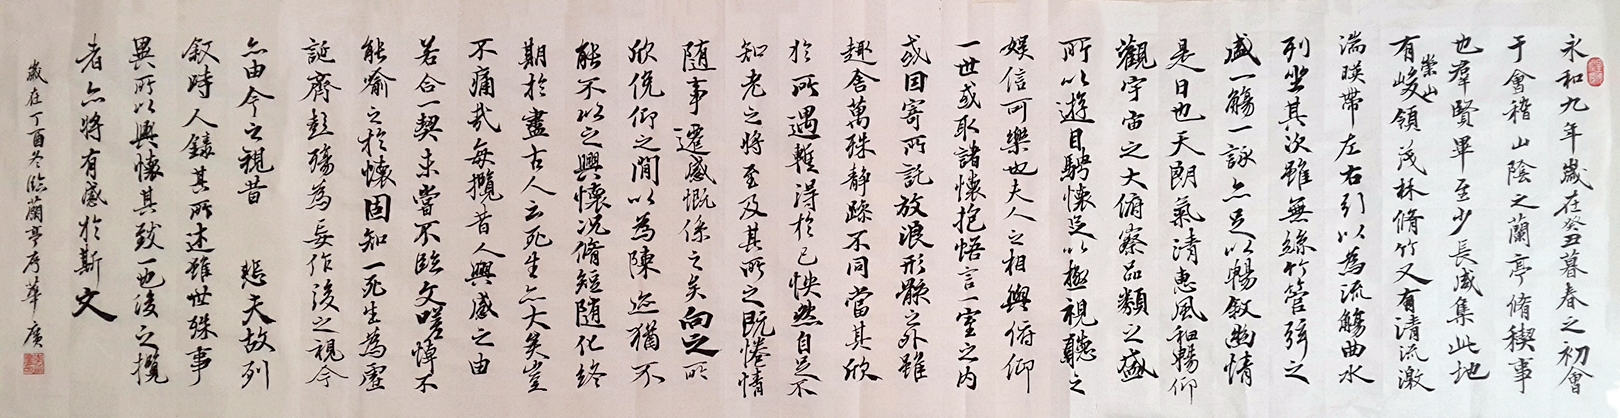 永和九年歲在癸丑暮春之初會
于會稽山陰之蘭亭脩稧事
也羣賢畢至少長咸集此地
有崇山峻領茂林脩竹又有清流激
湍暎帶左右引以為流觴曲水
列坐其次雖無絲竹管弦之
盛一觴一詠亦足以暢敘幽情
是日也天朗氣清惠風和暢仰
觀宇宙之大俯察品類之盛
所以遊目騁懷足以極視聽之
娛信可樂也夫人之相與俯仰
一世或取諸懷抱悟言一室之內
或因寄所託放浪形骸之外雖
趣舍萬殊静躁不同當其欣
於所遇暫得於己怏然自足不
知老之將至及其所之既惓情
隨事遷感慨係之矣向之所
欣俛仰之間以為陳迹猶不
能不以之興懷況脩短隨化終
期於盡古人云死生亦大矣豈
不痛哉每攬昔人興感之由
若合一契未嘗不臨文嗟悼不
能喻之於懷固知一死生為虛
誕齊彭殤為妄作後之視今
亦由今之視昔 悲夫故列
敘時人錄其所述雖世殊事
異所以興懷其致一也後之攬
者亦將有感於斯文
歲在丁酉冬臨蘭亭序華廣